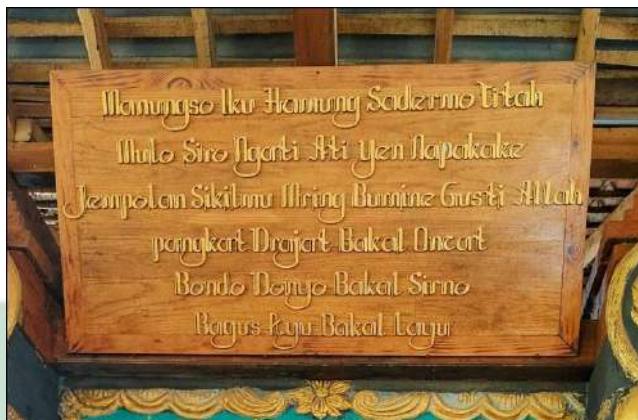 Manungso Iku Hamung Sadermo Titah
Mulo Siro Ngati Ati Yen Napakake
Jempolan Sikilmu Mring Bumine Gusti Allah
pangkat Drajat Bakal Oncat
Bondo Donyo Bakal Sirno
Bagus Ayu Bakal Layu